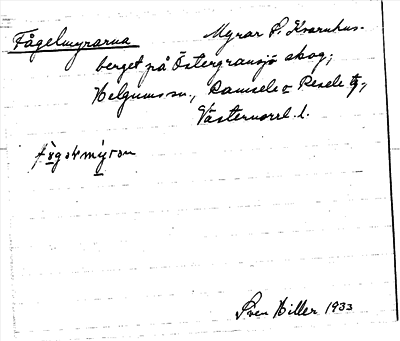 Fågelmyrarna Myrar P. Kvarnhus-
berget på Östergransjö skog;
Helgums sn., Ramsele o Resele tg.,
Västernorrl. l.
Sven Hiller 1933